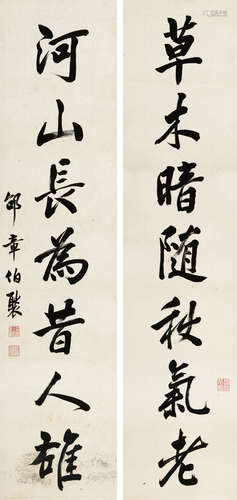 草木暗随秋氣老
河山長為昔人雄
邵章伯褧